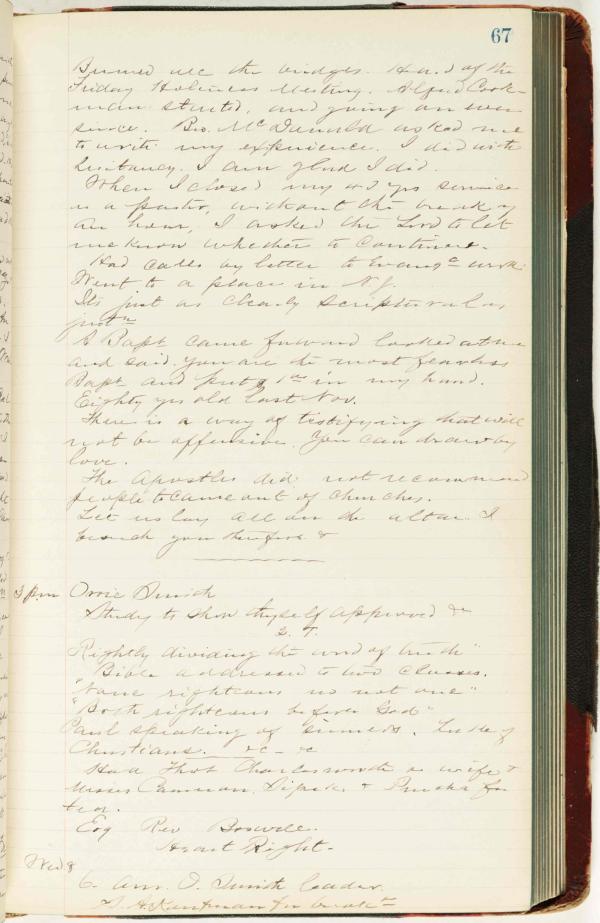 67
Burned all the bridges. Heard of the
Friday Holiness Meeting. Alfred Cook-
man started, and going on ever
since. Bro. McDonald asked me
to write my experience. I did with
hesitancy. I am glad I did.
When I closed my yrs service
as a pastor, without the break of
an hour, I asked the Lord to let
me know whether to continue.
Had calls by letter to Evangc work.
Went to a place in N.J.
Its just as clearly scriptural as
justn
A Bapt came forward looked at me
and said. You are the most fearless
Bapt and put in my hand.
Eighty yrs old last Nov.
There is a way of testifying that will
not be offensive. You can draw by
love.
The Apostles did not recommend
people to come out of churches.
Let us lay all on the altar. I
beseech you therefore &
3 pm Orrie Smith
Study to show thyself approved &c
2. T.
Rightly dividing the word of truth"
Bible addressed to two classes.
"None righteous no not one"
"Both righteous before God"
Paul speaking of sinners. Luke of
Christians. &c - &c
Had Thos Charlesworth & wife &
Misses & for
tea.
Eve Rev Boswell.
Heart Right.
Wed 8
6. am. O. Smith leader.